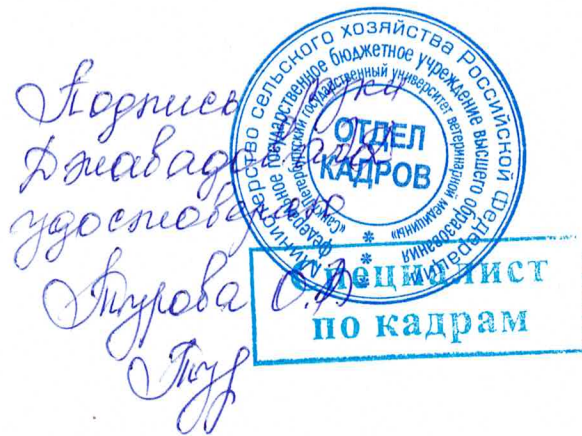 Подпись руки
удостоверяю
Турова О.В
Тур
Министерство сельского хозяйства Российской Федерации
федеральное государственное бюджетное учреждение высшего образования
«Санкт-Петербургский государственный университет ветеринарной медицины»
ОТДЕЛ
КАДРОВ
* *
Специалист
по кадрам